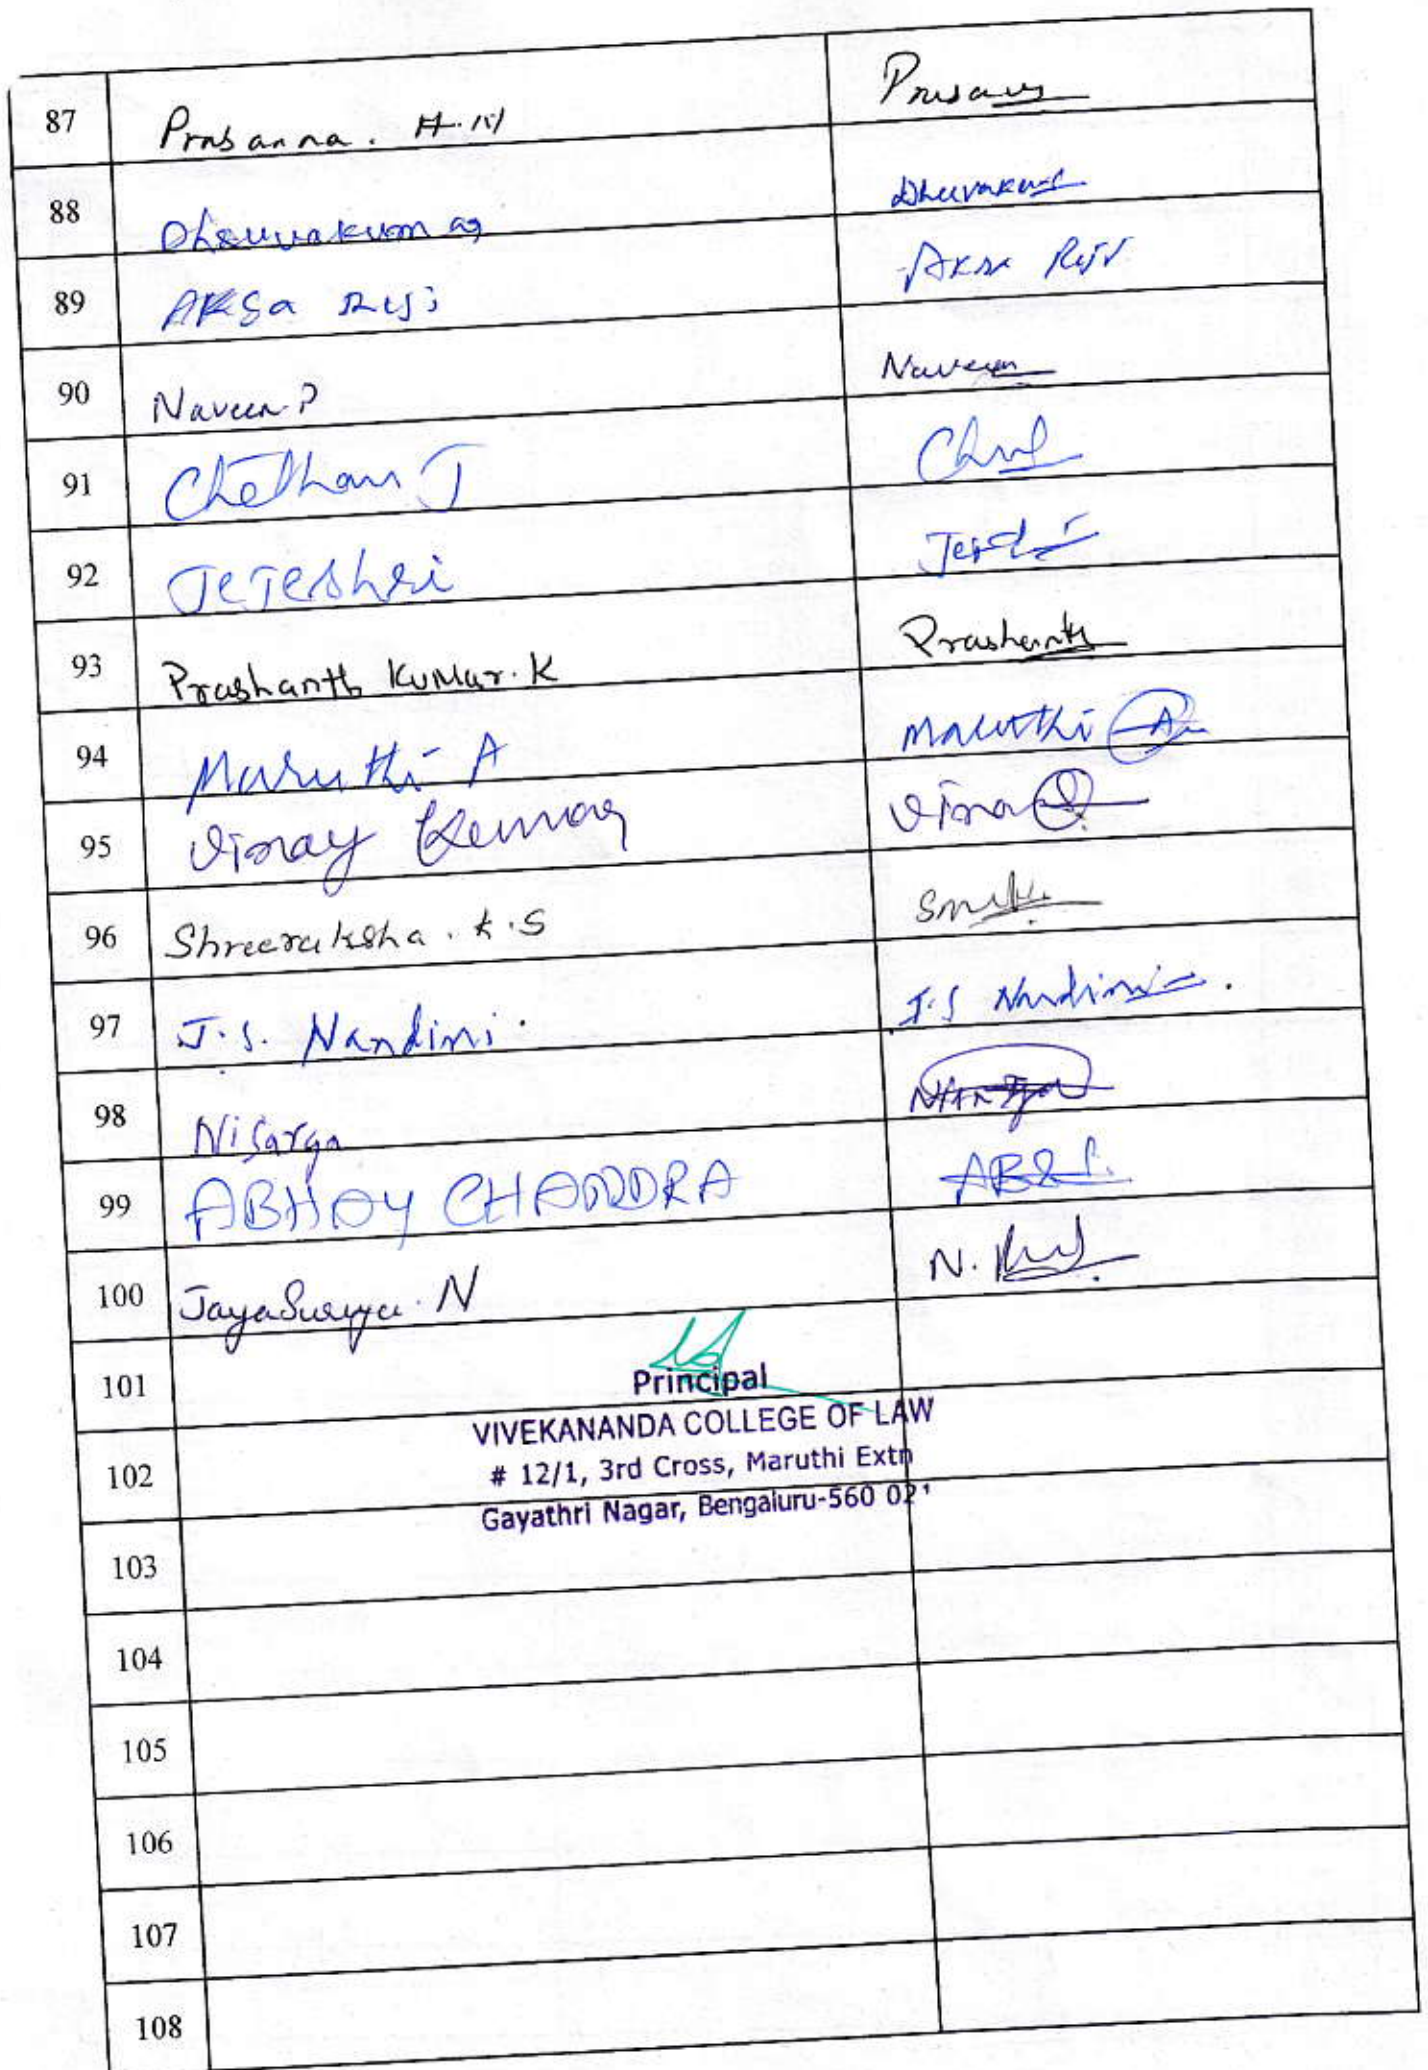 87 Prasanna. H.N Prasann
88 Dhruvakumar Dhruvakum
89 Aksa Riji Aksa Riji
90 Naveen P Naveen
91 Chethan J
92 Tejeshri
93 Prashanth Kumar. K Prashanth
94 Maruthi A Maruthi A
95 Vinay Kumar Vina
96 Shreeraksha. K.S
97 J.S. Nandini. J.S Nandini.
98 Nisarga
99 ABHAY CHANDRA
100 JayaSurya. N N.
101
Principal
VIVEKANANDA COLLEGE OF LAW
102
# 12/1, 3rd Cross, Maruthi Extn
Gayathri Nagar, Bengaluru-560 021
103
104
105
106
107
108